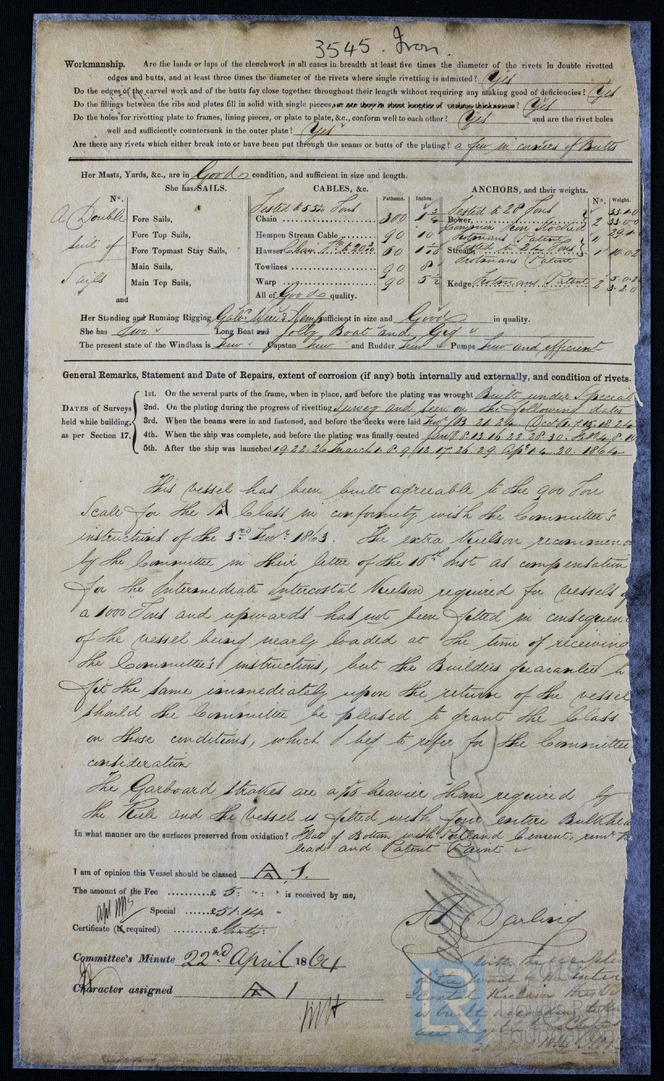 3545. Iron.
Workmanship. Are the lands or laps of the clenchwork in all cases in breadth at least five times the diameter of the rivets in double rivetted
edges and butts, and at least three times the diameter of the rivets where single rivetting is admitted? Yes
Do the edges of the carvel work and of the butts fay close together throughout their length without requiring any making good of deficiencies? Yes
Do the fillings between the ribs and plates fill in solid with single pieces, or are they in short lengths of various thicknesses? Yes
Do the holes for rivetting plate to frames, lining pieces, or plate to plate, &c., conform well to each other? Yes and are the rivet holes
well and sufficiently countersunk in the outer plate? Yes
Are there any rivets which either break into or have been put through the seams or butts of the plating? a few in corners of Butts
Her Masts, Yards, &c., are in Good condition, and sufficient in size and length.
She has SAILS. CABLES, &c. Fathoms. Inches. ANCHORS, and their weights.
N°. N°. Weight.
A Double suit of Sails
Fore Sails,
Fore Top Sails,
Fore Topmast Stay Sails,
Main Sails,
Main Top Sails,
and
Tested to 55 Tons
Chain 300
Hempen Stream Cable 90 10
Hawser Chain 60
Towlines 90 8
Warp 90 5½
All of Good quality.
Tested to 28 Tons
Bower, 2
Trotmans Patent
Stream, 1
Trotmans Patent
Kedge, Trotmans Patent 2
Her Standing and Running Rigging Galv. Wire & Hemp sufficient in size and Good in quality.
She has one Long Boat and Jolly Boat and Gig
The present state of the Windlass is New Capstan New and Rudder New Pumps New and efficient
General Remarks, Statement and Date of Repairs, extent of corrosion (if any) both internally and externally, and condition of rivets.
DATES of Surveys held while building, as per Section 17.
1st. On the several parts of the frame, when in place, and before the plating was wrought Built under Special
2nd. On the plating during the progress of rivetting Survey and seen on the following dates
3rd. When the beams were in and fastened, and before the decks were laid
4th. When the ship was complete, and before the plating was finally coated
5th. After the ship was launched 1864
This vessel has been built agreeable to the 900 Ton
Scale for the A Class in conformity with the Committee's
instructions of the 3rd Novr. 1863. The extra Keelson recommen
by the Committee in their letter of the 15th Inst as compensation
for the Intermediate Intercostal Keelson required for vessels of
a 1000 Tons and upwards has not been fitted in consequen
of the vessel being nearly loaded at the time of receiving
the Committee's instructions, but the Builders guarantee to
fit the same immediately upon the return of the vessel
should the Committee be pleased to grant the Class
on those conditions, which I beg to refer for the Committee
consideration
The Garboard strakes are heavier than required by
the Rule and the vessel is fitted with four entire Bulkhea
In what manner are the surfaces preserved from oxidation? Flats of Bottom with Portland Cement,
lead and Patent Paint
I am of opinion this Vessel should be classed A 1.
The amount of the Fee £ 5 : " : " is received by me,
Special £51.14
Certificate (if required)
A. Darling
Committee's Minute 22nd April 1864
Character assigned A 1